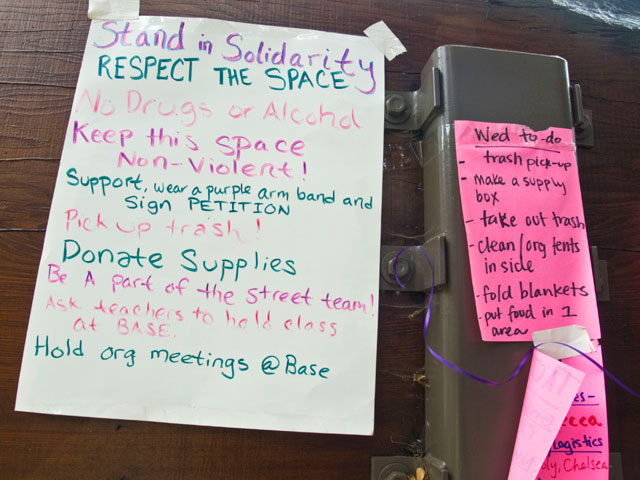 Stand in Solidarity
RESPECT THE SPACE
No Drugs or Alcohol
Keep this space
Non-Violent!
Support, wear a purple arm band and
Sign PETITION
Pick up trash!
Donate Supplies
Be A part of the street team!
Ask teachers to hold class
at BASE.
Hold org meetings @Base
Wed to-do
- trash pick-up
- make a supply
box
- take out trash
- clean/org tents
in side
- fold blankets
- put food in 1
area
Logistics
Chelsea